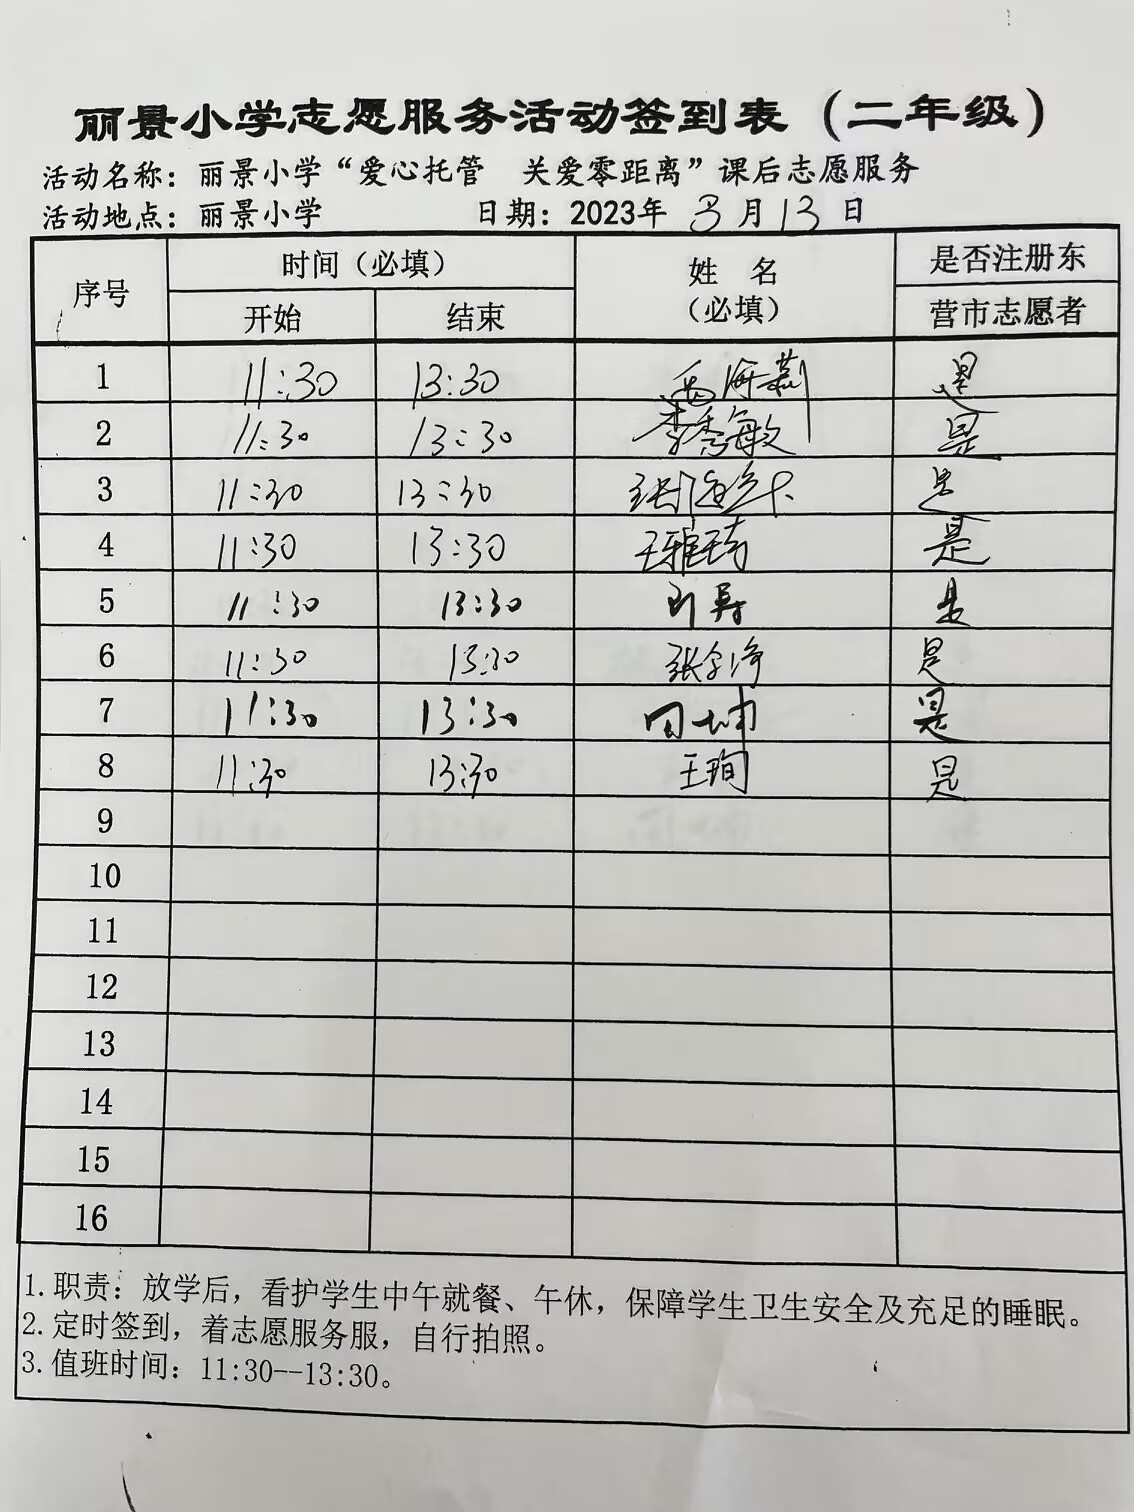 丽景小学志愿服务活动签到表（二年级）
活动名称：丽景小学“爱心托管 关爱零距离”课后志愿服务
活动地点：丽景小学 日期：2023年 3月 13日
序号 时间（必填） 姓 名（必填） 是否注册东营市志愿者
开始 结束
1 11:30 13:30 是
2 11:30 13:30 李秀敏 是
3 11:30 13:30 是
4 11:30 13:30 王雅琦 是
5 11:30 13:30 是
6 11:30 13:30 是
7 11:30 13:30 田坤 是
8 11:30 13:30 王珣 是
9
10
11
12
13
14
15
16
1.职责：放学后，看护学生中午就餐、午休，保障学生卫生安全及充足的睡眠。
2.定时签到，着志愿服务服，自行拍照。
3.值班时间：11:30--13:30。